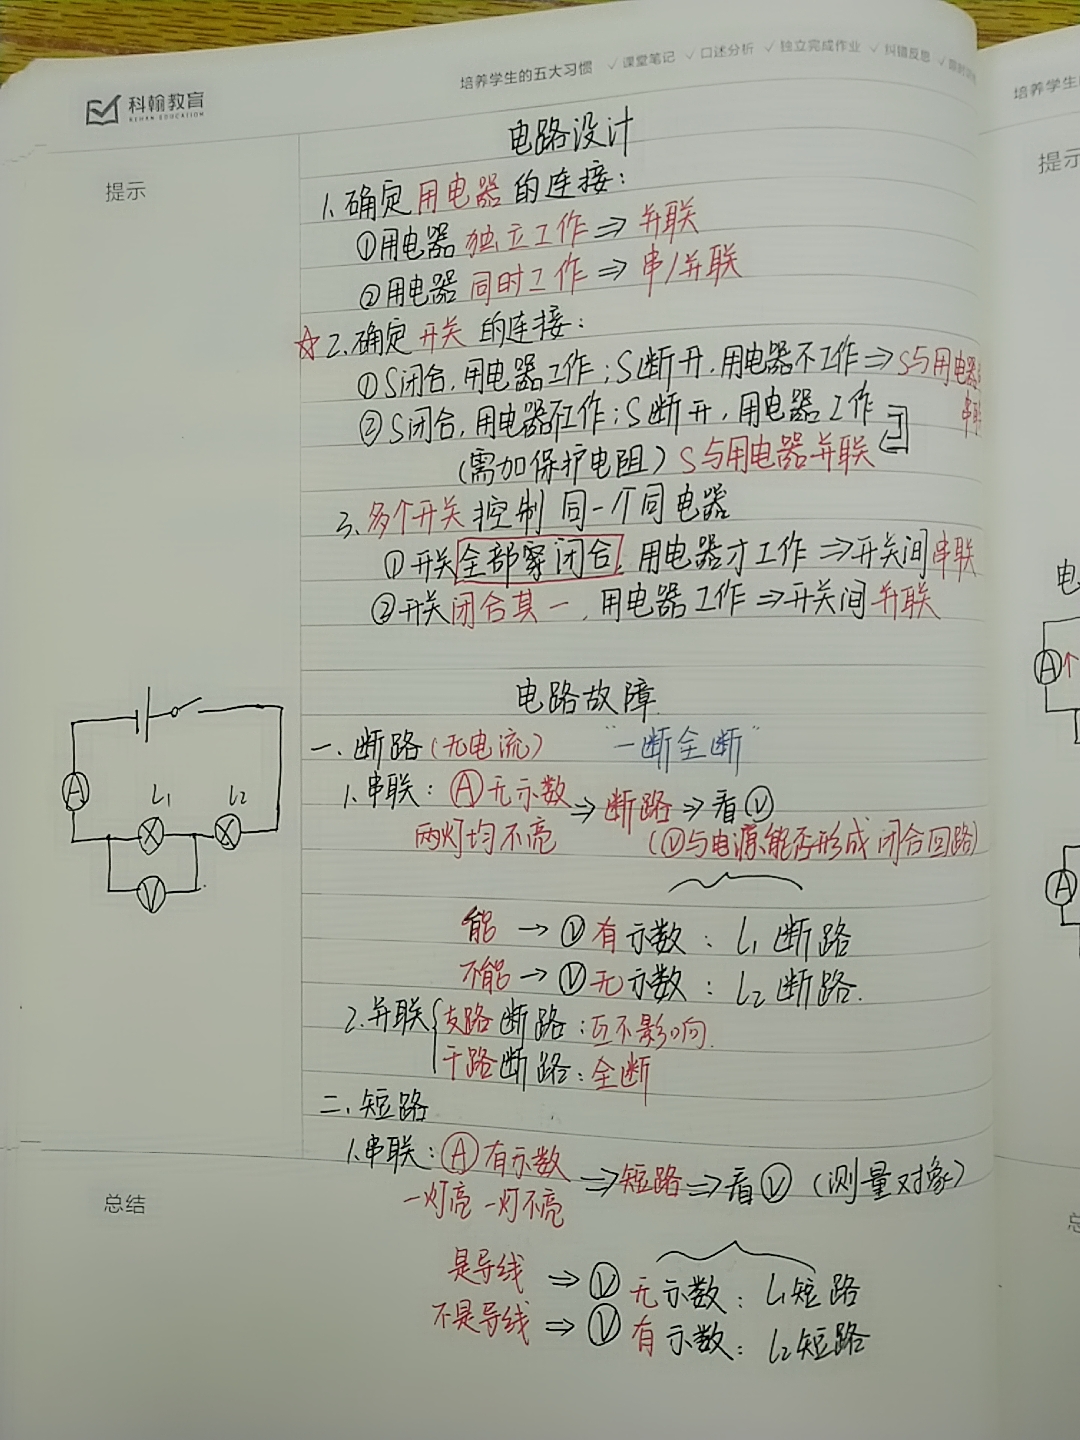 科翰教育
KEHAN EDUCATION
培养学生的五大习惯 ✓课堂笔记 ✓口述分析 ✓独立完成作业 ✓纠错反思
培养学生
提示
提示
电路设计
1.确定用电器的连接：
①用电器独立工作⇒并联
②用电器同时工作⇒串/并联
☆2.确定开关的连接：
①S闭合,用电器工作；S断开,用电器不工作⇒S与用电器
串联
②S闭合,用电器不工作；S断开,用电器工作
(需加保护电阻) S与用电器并联
3.多个开关控制同一个同电器
①开关全部家闭合,用电器才工作⇒开关间串联
②开关闭合其一,用电器工作⇒开关间并联
电路故障
一.断路(无电流) “一断全断”
1.串联：Ⓐ无示数⇒断路⇒看Ⓥ
两灯均不亮 (Ⓥ与电源能否形成闭合回路)
能→Ⓥ有示数：L₁断路
不能→Ⓥ无示数：L₂断路.
2.并联{支路断路：互不影响.
干路断路：全断
二.短路
1.串联：Ⓐ有示数⇒短路⇒看Ⓥ(测量对象)
一灯亮 一灯不亮
是导线⇒Ⓥ无示数：L₁短路
不是导线⇒Ⓥ有示数：L₂短路
A
L₁ L₂
V
总结
电
A
A
总